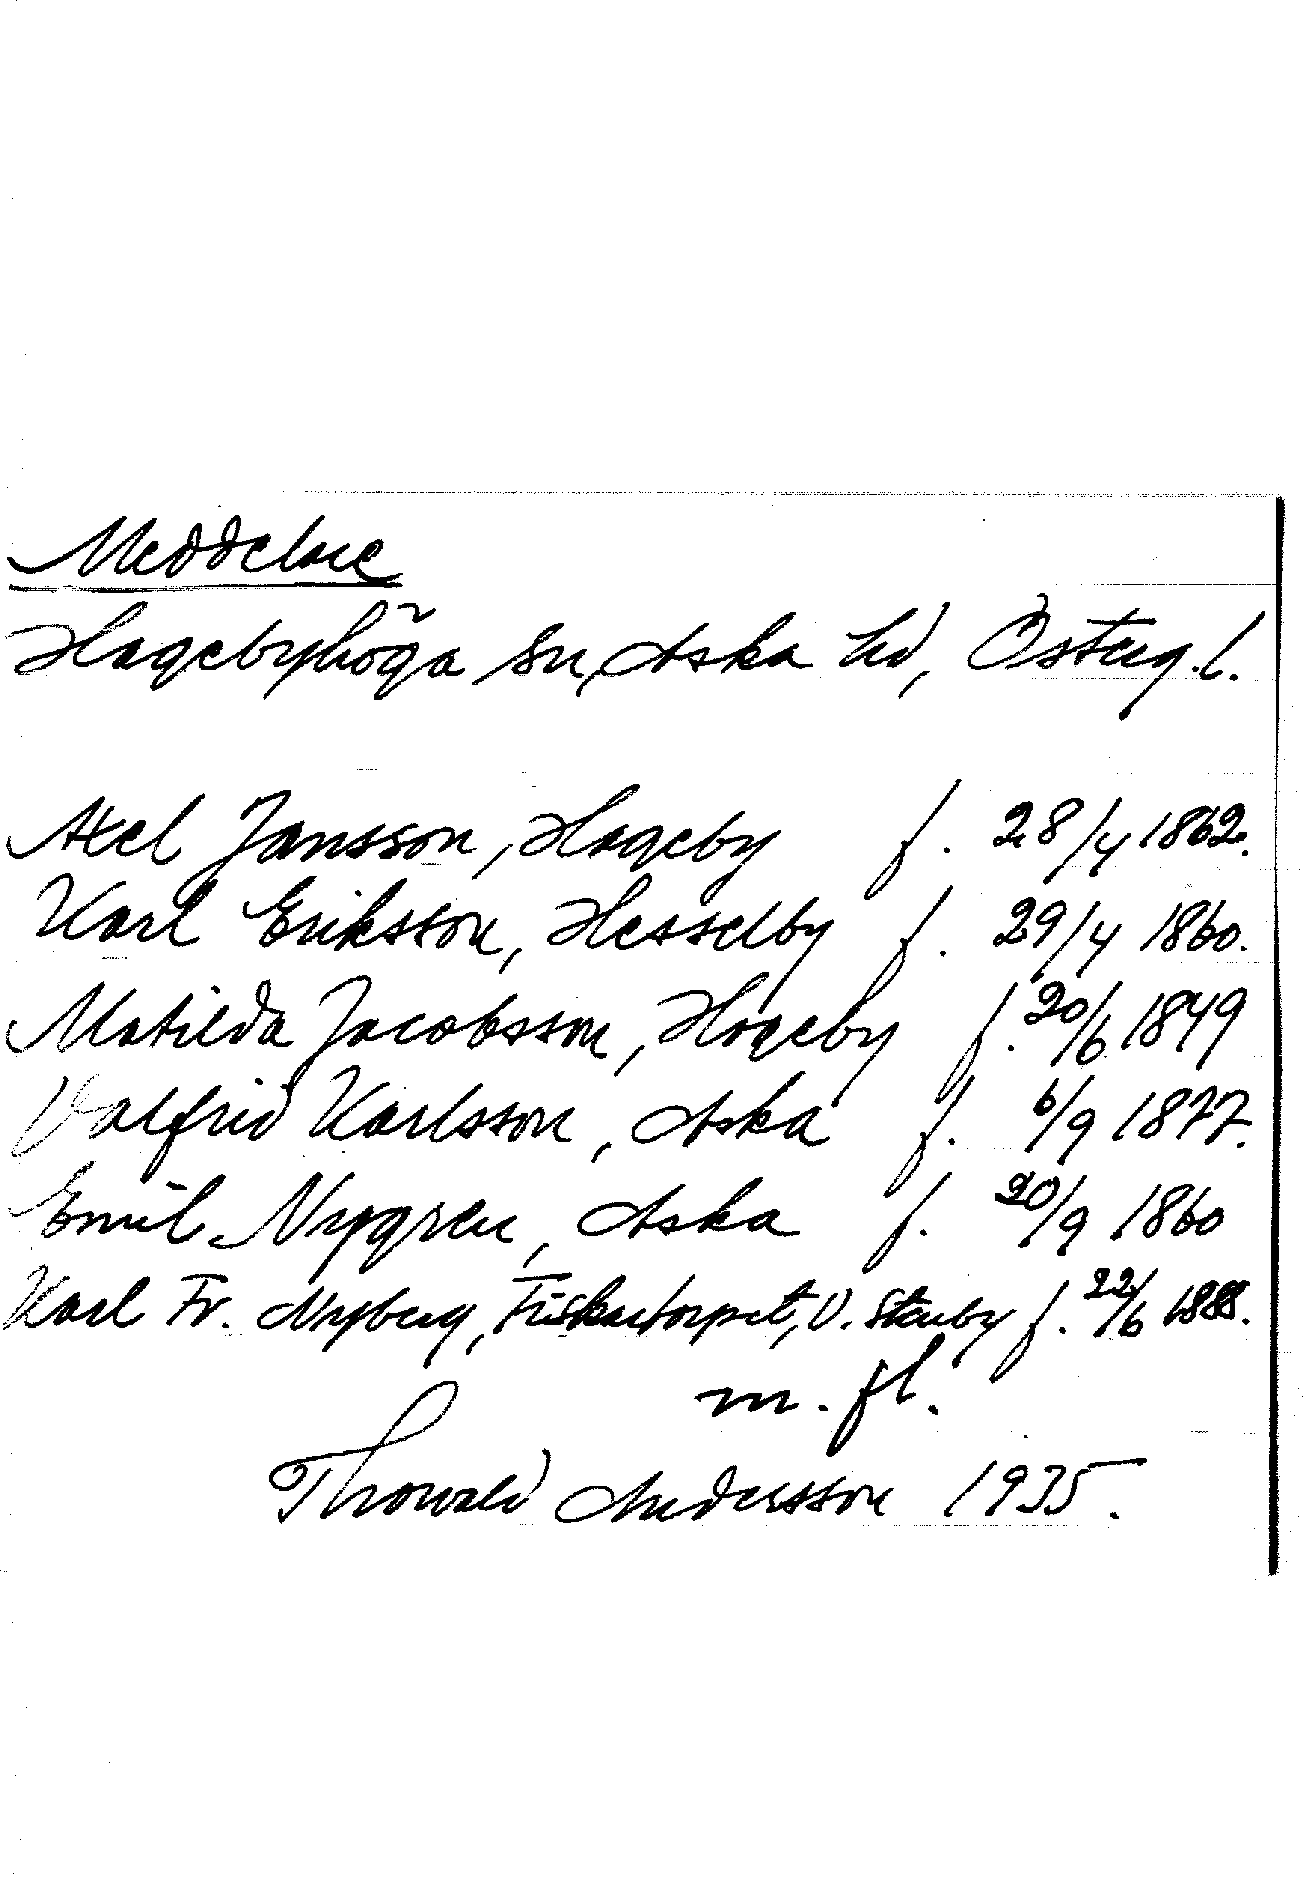 Meddelare
Hagebyhöga sn, Aska hd, Österg. l.
Axel Jansson, Hageby f. 28/4 1862.
Karl Eriksson, Hesselby f. 29/4 1860.
Matilda Jacobsson, Hageby f. 20/6 1849
Valfrid Karlsson, Aska f. 6/9 1877.
Emil Nygren, Aska f. 20/9 1860
Karl Fr. Nyberg, Fiskartorpet, V. Stenby f. 22/6 1888.
m. fl.
Thorvald Andersson 1935.